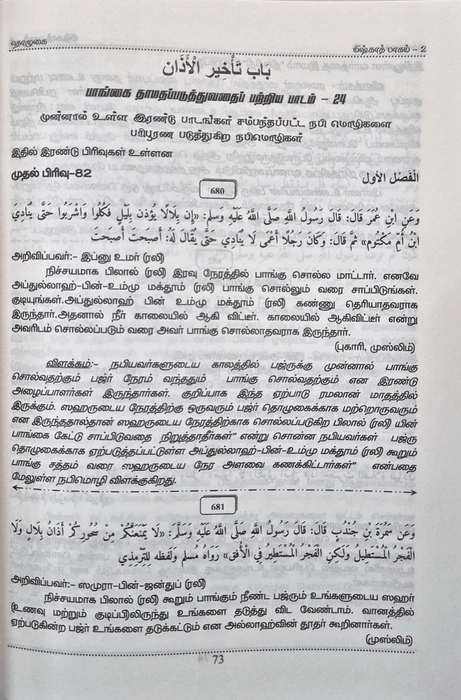 தொழுகை மிஷ்காத் பாகம் - 2
باب تَأْخِيرِ الْأَذَان
பாங்கை தாமதப்படுத்துவதைப் பற்றிய பாடம் - 24
முன்னால் உள்ள இரண்டு பாடங்கள் சம்பந்தப்பட்ட நபி மொழிகளை
பரிபூரண படுத்துகிற நபிமொழிகள்
இதில் இரண்டு பிரிவுகள் உள்ளன
முதல் பிரிவு-82 الْفَصْل الأول
680
وَعَنِ ابْنِ عُمَرَ قَالَ: قَالَ رَسُولُ اللَّهِ صَلَّى اللَّهُ عَلَيْهِ وَسلم: «إِن بِلَالًا يُؤذن بِلَيْلٍ فَكُلُوا وَاشْرَبُوا حَتَّى يُنَادِيَ
ابْنُ أُمِّ مَكْتُوم» ثمَّ قَالَ: وَكَانَ رَجُلًا أَعْمَى لَا يُنَادِي حَتَّى يُقَالَ لَهُ: أَصبَحت أَصبَحت
அறிவிப்பவர்:- இப்னு உமர் (ரலி)
நிச்சயமாக பிலால் (ரலி) இரவு நேரத்தில் பாங்கு சொல்ல மாட்டார். எனவே
அப்துல்லாஹ்-பின்-உம்மு மக்தூம் (ரலி) பாங்கு சொல்லும் வரை சாப்பிடுங்கள்.
குடியுங்கள்.அப்துல்லாஹ் பின் உம்மு மக்தூம் (ரலி) கண்ணு தெரியாதவராக
இருந்தார்.அதனால் நீர் காலையில் ஆகி விட்டீர். காலையில் ஆகிவிட்டீர் என்று
அவரிடம் சொல்லப்படும் வரை அவர் பாங்கு சொல்லாதவராக இருந்தார்.
(புகாரி, முஸ்லிம்)
விளக்கம்:- நபியவர்களுடைய காலத்தில் பஜ்ருக்கு முன்னால் பாங்கு
சொல்வதற்கும் பஜ்ர் நேரம் வந்ததும் பாங்கு சொல்வதற்கும் என இரண்டு
அழைப்பாளர்கள் இருந்தார்கள். குறிப்பாக இந்த ஏற்பாடு ரமலான் மாதத்தில்
இருக்கும். ஸஹருடைய நேரத்திற்கு ஒருவரும் பஜ்ர் தொழுகைக்காக மற்றொருவரும்
என இருந்ததால்தான் ஸஹருடைய நேரத்திற்காக சொல்லப்படுகிற பிலால் (ரலி) யின்
பாங்கை கேட்டு சாப்பிடுவதை நிறுத்தாதீர்கள்" என்று சொன்ன நபியவர்கள் பஜ்ரு
தொழுகைக்காக ஏற்படுத்தப்பட்டுள்ள அப்துல்லாஹ்-பின்-உம்மு மக்தூம் (ரலி) கூறும்
பாங்கு சத்தம் வரை ஸஹருடைய நேர அளவை கணக்கிட்டார்கள்" என்பதை
மேலுள்ள நபிமொழி விளக்குகிறது.
681
وَعَن سَمُرَة بن جُنْدُب قَالَ: قَالَ رَسُولُ اللَّهِ صَلَّى اللَّهُ عَلَيْهِ وَسَلَّمَ: «لَا يَمْنَعَنَّكُمْ مِنْ سُحُورِكُمْ أَذَانُ بِلَالٍ وَلَا
الْفَجْرُ الْمُسْتَطِيلُ وَلَكِنِ الْفَجْرُ الْمُسْتَطِيرُ فِي الْأُفُقِ» رَوَاهُ مُسلم وَلَفظه لِلتِّرْمِذِي
அறிவிப்பவர்:- ஸமுரா-பின்-ஜன்துப் (ரலி)
நிச்சயமாக பிலால் (ரலி) கூறும் பாங்கும் நீண்ட பஜ்ரும் உங்களுடைய ஸஹர்
(உணவு மற்றும் குடிப்பு)லிருந்து உங்களை தடுத்து விட வேண்டாம். வானத்தில்
ஏற்படுகின்ற பஜ்ர் உங்களை தடுக்கட்டும் என அல்லாஹ்வின் தூதர் கூறினார்கள்.
(முஸ்லிம்)
73